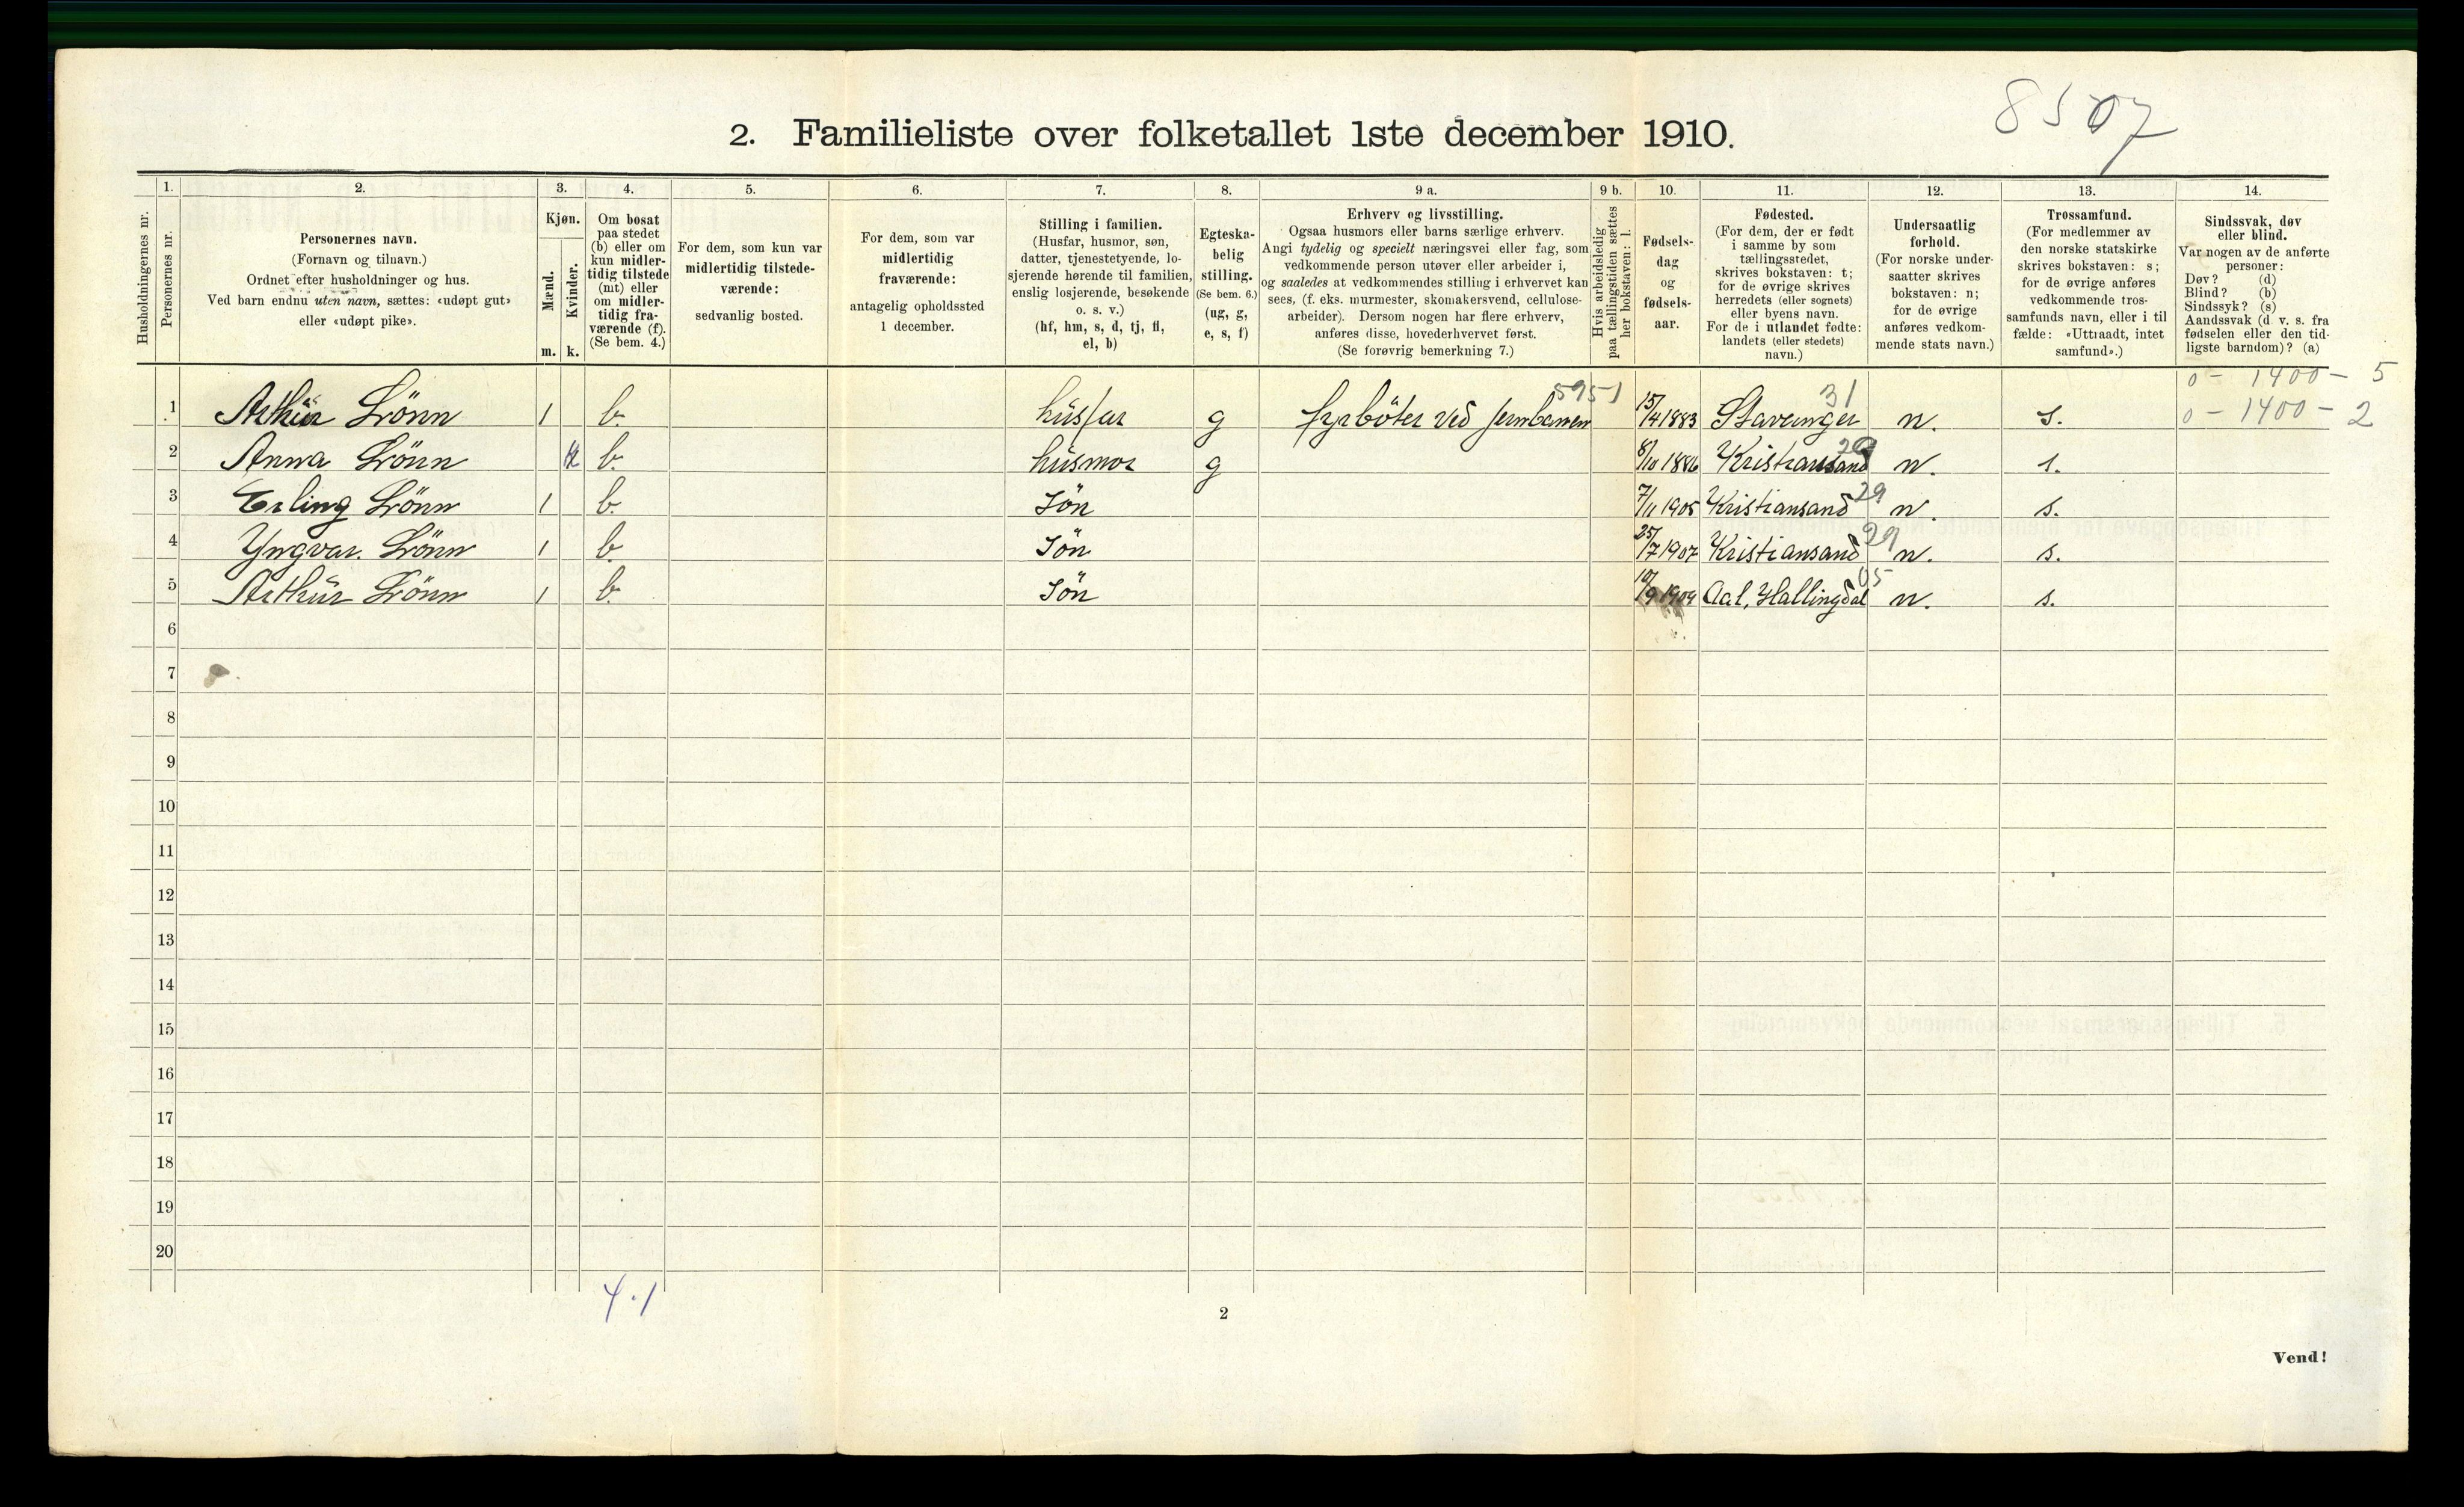 8507
2. Familieliste over folketallet 1ste december 1910.
Husholdningernes nr.
1.
Personernes nr.
2.
Personernes navn.
(Fornavn og tilnavn.)
Ordnet efter husholdninger og hus.
Ved barn endnu uten navn, sættes: «udøpt gut»
eller «udøpt pike».
3.
Kjøn.
Mænd.
Kvinder.
m. k.
4.
Om bosat
paa stedet
(b) eller om
kun midler-
tidig tilstede
(mt) eller
om midler-
tidig fra-
værende (f).
(Se bem. 4.)
5.
For dem, som kun var
midlertidig tilstede-
værende:
sedvanlig bosted.
6.
For dem, som var
midlertidig
fraværende:
antagelig opholdssted
1 december.
7.
Stilling i familien.
(Husfar, husmor, søn,
datter, tjenestetyende, lo-
sjerende hørende til familien,
enslig losjerende, besøkende
o. s. v.)
(hf, hm, s, d, tj, fl,
el, b)
8.
Egteska-
belig
stilling.
(Se bem. 6.)
(ug, g,
e, s, f)
9 a.
Erhverv og livsstilling.
Ogsaa husmors eller barns særlige erhverv.
Angi tydelig og specielt næringsvei eller fag, som
vedkommende person utøver eller arbeider i,
og saaledes at vedkommendes stilling i erhvervet kan
sees, (f. eks. murmester, skomakersvend, cellulose-
arbeider). Dersom nogen har flere erhverv,
anføres disse, hovederhvervet først.
(Se forøvrig bemerkning 7.)
9 b.
Hvis arbeidsledig
paa tællingstiden sættes
her bokstaven: l.
10.
Fødsels-
dag
og
fødsels-
aar.
11.
Fødested.
(For dem, der er født
i samme by som
tællingsstedet,
skrives bokstaven: t;
for de øvrige skrives
herredets (eller sognets)
eller byens navn.
For de i utlandet fødte:
landets (eller stedets)
navn.)
12.
Undersaatlig
forhold.
(For norske under-
saatter skrives
bokstaven: n;
for de øvrige
anføres vedkom-
mende stats navn.)
13.
Trossamfund.
(For medlemmer av
den norske statskirke
skrives bokstaven: s;
for de øvrige anføres
vedkommende tros-
samfunds navn, eller i til
fælde: «Uttraadt, intet
samfund».)
14.
Sindssvak, døv
eller blind.
Var nogen av de anførte
personer:
Døv? (d)
Blind? (b)
Sindssyk? (s)
Aandssvak (d. v. s. fra
fødselen eller den tid-
ligste barndom)? (a)
0 - 1400 - 5
5951 31
1 Arthur Lrönn 1 b. husfar g fyrböter ved jernbanen 15/4 1883 Stavanger n. s. 0 - 1400 - 2
29
2 Anna Lrönn k b. husmor g 8/10 1886 Kristiansand n. s.
3 Erling Lrönn 1 b. Sön 7/11 1905 Kristiansand 29 n. s.
4 Yngvar. Lrönn 1 b. Sön 25/7 1907 Kristiansand 29 n. s.
5 Arthur Lrönn 1 b. Sön 10/9 1909 Aal, Hallingdal 05 n. s.
6
7
8
9
10
11
12
13
14
15
16
17
18
19
20
4.1
2
Vend!